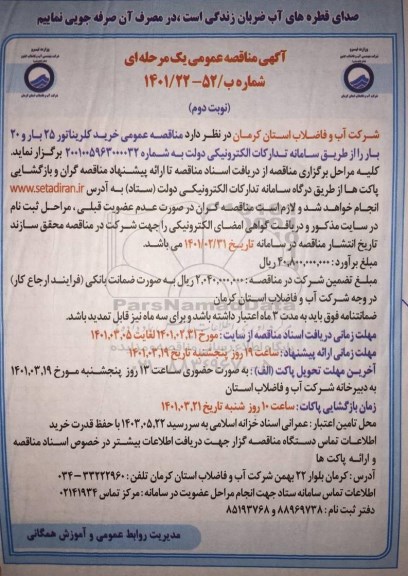 صدای قطره های آب ضربان زندگی است ،در مصرف آن صرفه جویی نماییم
آگهی مناقصه عمومی یک مرحله ای
شماره ب/۵۲-۱۴۰۱/۲۲
(نوبت دوم)
شرکت آب و فاضلاب استان کرمان در نظر دارد مناقصه عمومی خرید کلریناتور ۲۵ بار و ۲۰
بار را از طریق سامانه تدارکات الکترونیکی دولت به شماره ۲۰۰۱۰۰۵۹۶۳۰۰۰۰۳۲ برگزار نماید.
کلیه مراحل برگزاری مناقصه از دریافت اسناد مناقصه تا ارائه پیشنهاد مناقصه گران و بازگشایی
پاکت ها از طریق درگاه سامانه تدارکات الکترونیکی دولت (ستاد) به آدرس www.setadiran.ir
انجام خواهد شد و لازم است مناقصه گران در صورت عدم عضویت قبلی ، مراحل ثبت نام
در سایت مذکور و دریافت گواهی امضای الکترونیکی را جهت شرکت در مناقصه محقق سازند
تاریخ انتشار مناقصه در سامانه تاریخ ۱۴۰۱/۰۲/۳۱ می باشد.
مبلغ برآورد : ۴۰،۸۰۰،۰۰۰،۰۰۰ ریال
مبلغ تضمین شرکت در مناقصه : ۲،۰۴۰،۰۰۰،۰۰۰ ریال به صورت ضمانت بانکی (فرایند ارجاع کار)
در وجه شرکت آب و فاضلاب استان کرمان
ضمانتنامه فوق باید به مدت ۳ ماه اعتبار داشته باشد و برای سه ماه نیز قابل تمدید باشد.
مهلت زمانی دریافت اسناد مناقصه از سایت : مورخ ۱۴۰۱،۰۲،۳۱ لغایت ۱۴۰۱،۰۳،۰۵
مهلت زمانی ارائه پیشنهاد: ساعت ۱۹ روز پنجشنبه تاریخ ۱۴۰۱،۰۳،۱۹
آخرین مهلت تحویل پاکت (الف) : به صورت حضوری ساعت ۱۳ روز پنجشنبه مورخ ۱۴۰۱،۰۳،۱۹
به دبیرخانه شرکت آب و فاضلاب استان
زمان بازگشایی پاکات : ساعت ۱۰ روز شنبه تاریخ ۱۴۰۱،۰۳،۲۱
محل تامین اعتبار : عمرانی اسناد خزانه اسلامی به سررسید ۱۴۰۳،۰۵،۲۲ با حفظ قدرت خرید
اطلاعات تماس دستگاه مناقصه گزار جهت دریافت اطلاعات بیشتر در خصوص اسناد مناقصه
و ارائه پاکت ها
آدرس : کرمان بلوار ۲۲ بهمن شرکت آب و فاضلاب استان کرمان تلفن : ۳۳۲۲۲۹۶۰-۰۳۴
اطلاعات تماس سامانه ستاد جهت انجام مراحل عضویت در سامانه : مرکز تماس ۰۲۱۴۱۹۳۴
دفتر ثبت نام : ۸۸۹۶۹۷۳۸ و ۸۵۱۹۳۷۶۸
مدیریت روابط عمومی و آموزش همگانی
ParsNamadData